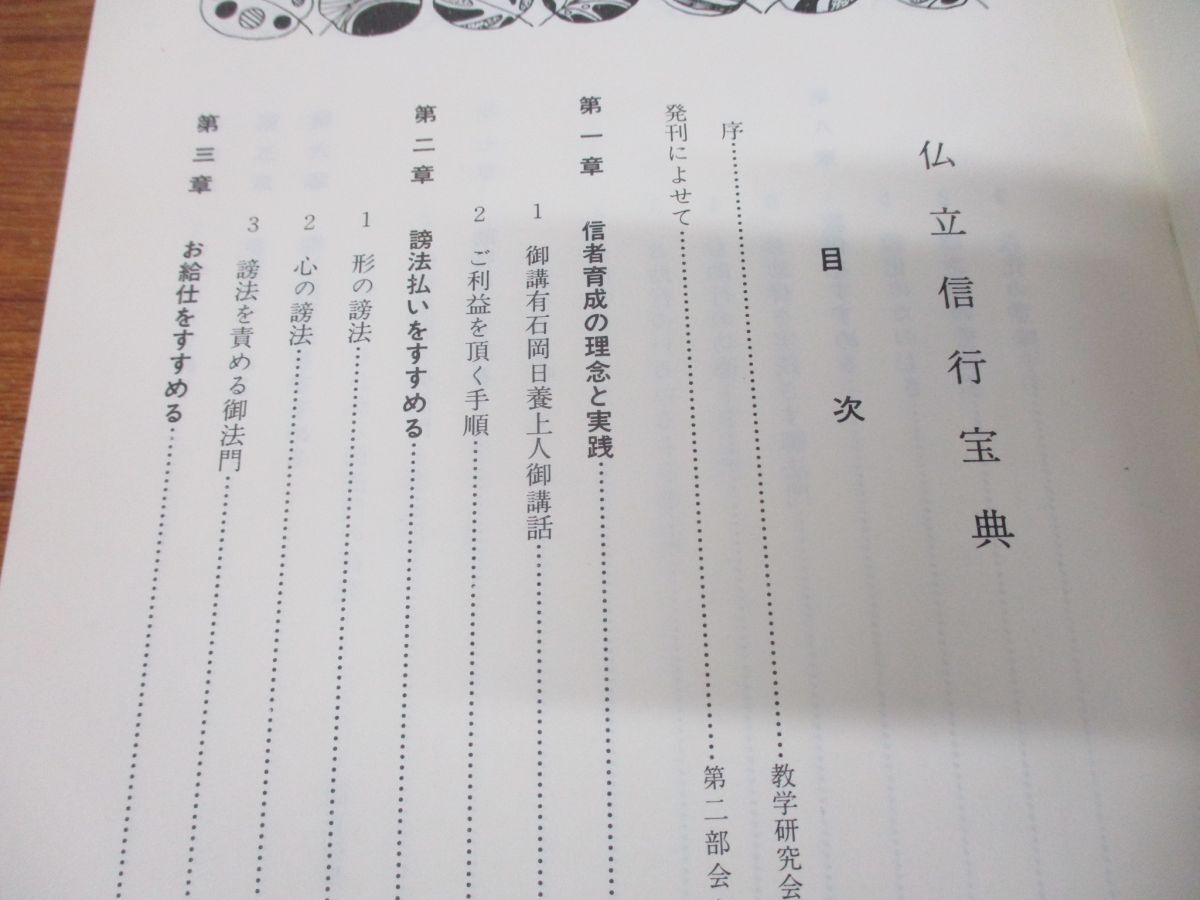 仏立信行宝典
目次
序……教学研究会
発刊によせて……第二部会
第一章 信者育成の理念と実践……
1 御講有石岡日養上人御講話……
2 ご利益を頂く手順……
第二章 謗法払いをすすめる……
1 形の謗法……
2 心の謗法……
3 謗法を責める御法門……
第三章 お給仕をすすめる……